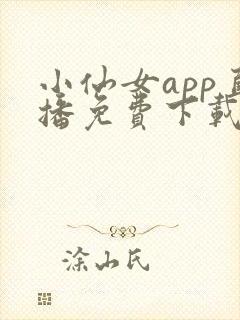 小仙女app直
播免费下载
涂山氏